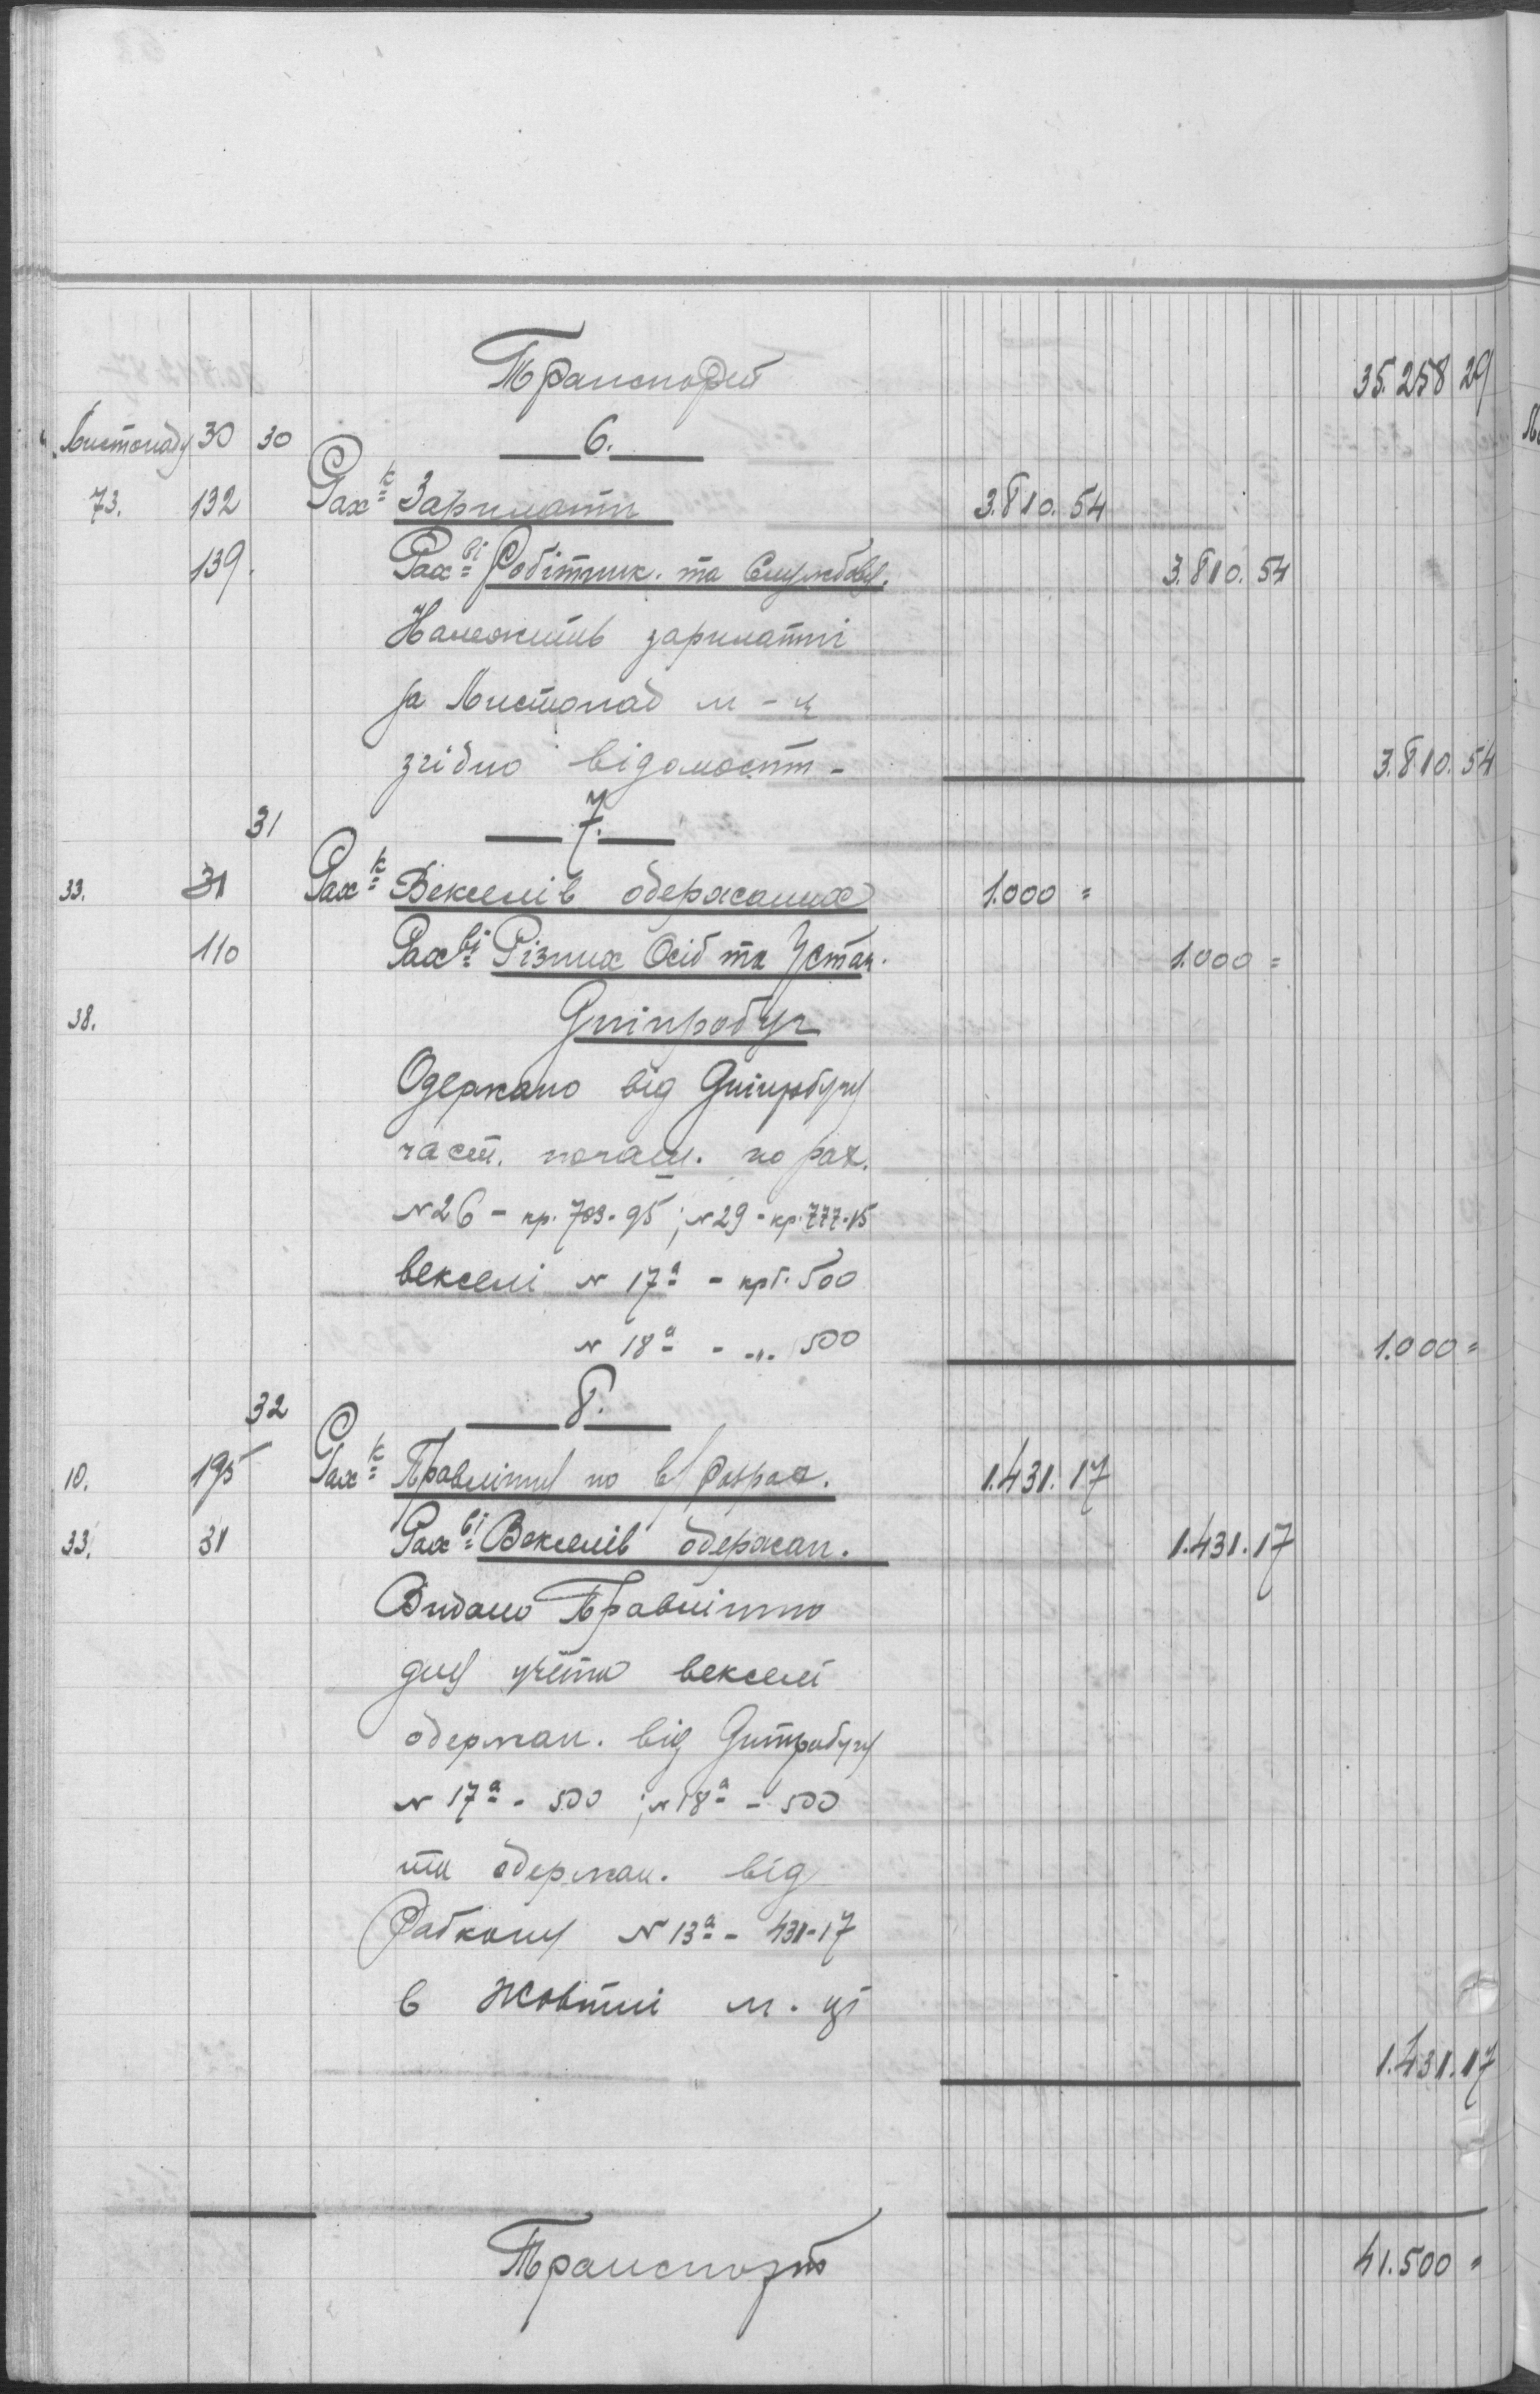 Транспорт 35.258 29
Листопаду 30 30 6.
73. 132 Рах-к Зарплати 3.810.54
139. Рах-ві Робітник. та Службов. 3.810.54
Належить зарплатні
за Листопад м-ц
згідно відомост- 3.810.54
31 7.
33. 31 Рах-к Векселів одержаних 1.000 =
110 Рах-ві Різних Осіб та Устан. 1.000 =
38. Дніпробуг
Одержано від Дніпробугу
част. погаш. по рах.
N26 - кр. 703-95; N29 - кр. 777-15
векселі N 17а - крб. 500
N 18а - -"- 500 1.000 =
32 8.
10. 195 Рах-к Правлінню по в/розрах. 1.431.17
33. 31 Рах-ві Векселів одержан. 1.431.17
Видано Правлінню
для учёта векселі
одержан. від Дніпробугу
N 17а - 500; N 18а - 500
та одержан. від
N 13а - 431-17
в Жовтні м. ці
1.431.17
Транспорт 41.500 =